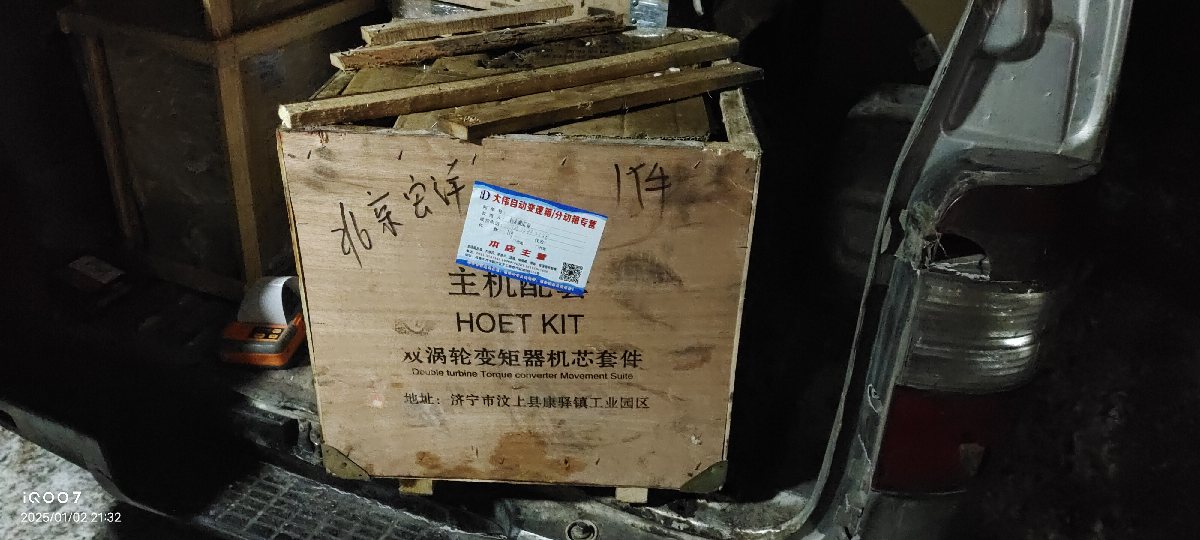 北京宏洋
1件
大伟自动变速箱/分动箱专营
本店主营
主机配套
HOET KIT
双涡轮变矩器机芯套件
Double turbine Torque converter Movement Suite
地址：济宁市汶上县康驿镇工业园区
iQOO7
2025/01/02 21:32